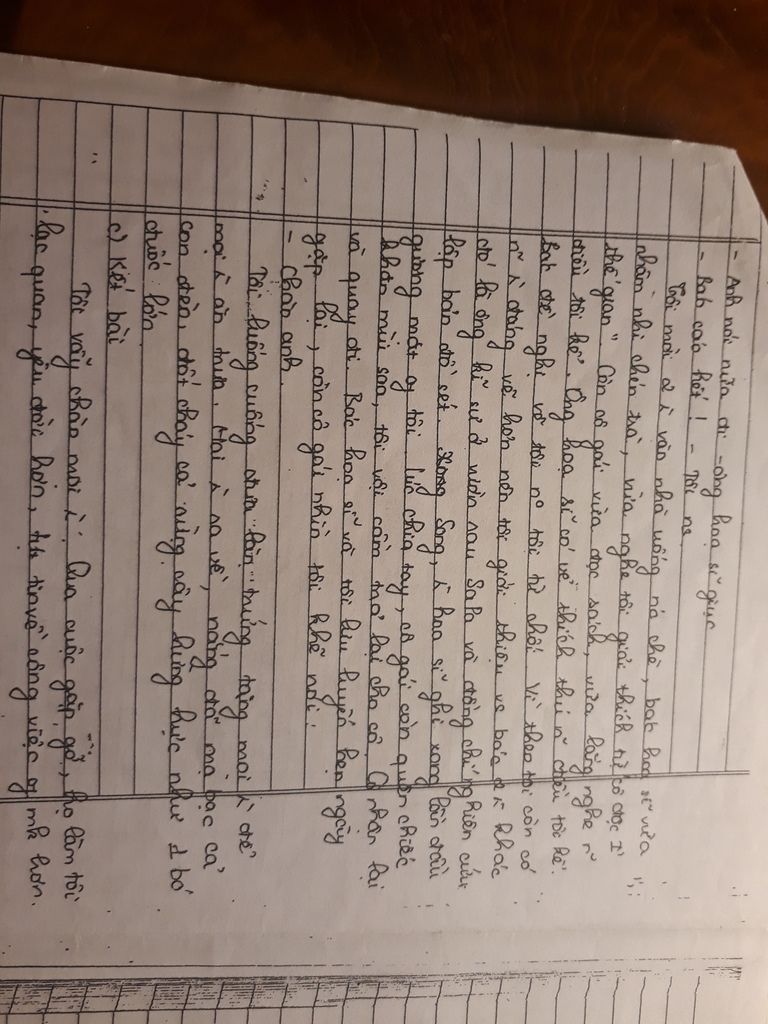 - Anh nói nữa đi - ông hoạ sĩ giục
- Báo cáo hết! - Tôi ns
Tôi mời 2 ng vào nhà uống nc chè, bác hoạ sĩ vừa
nhâm nhi chén trà, vừa nghe tôi giải thích từ "cô độc I'
thế gian". Còn cô gái vừa đọc sách, vừa lắng nghe ~
điều tôi kể. Ông hoạ sĩ có vẻ thích thú ~ điều tôi kể.
Bác đề nghị vẽ tôi n° tôi từ chối. Vì theo tôi còn có
~ ng đáng vẽ hơn nên tôi giới thiệu vs bác 2 ng khác
đó là ông kĩ sư ở vườn rau Sa Pa và đồng chí nghiên cứu
lập bản đồ sét. Xong, ng hoạ sĩ ghi xong lần đầu
gương mặt of tôi. Lúc chia tay, cô gái còn quên chiếc
khăn mùi soa, tôi vội cầm trả lại cho cô. Cô nhận lại
và quay đi. Bác hoạ sĩ và tôi lưu luyến hẹn ngày
gặp lại, còn cô gái nhìn tôi khẽ nói:
- Chào anh.
Tôi luống cuống đưa làn trứng tặng mọi ng để
mọi ng ăn trưa. Hai ng ra về, nắng đã mạ bạc cả
con đèo, đốt cháy cả rừng cây hừng hực như 1 bó
đuốc lớn
c) Kết bài
Tôi vẫy chào mọi ng. Qua cuộc gặp gỡ, họ làm tôi
lạc quan, yêu đời hơn, tự tin về công việc of mk hơn.